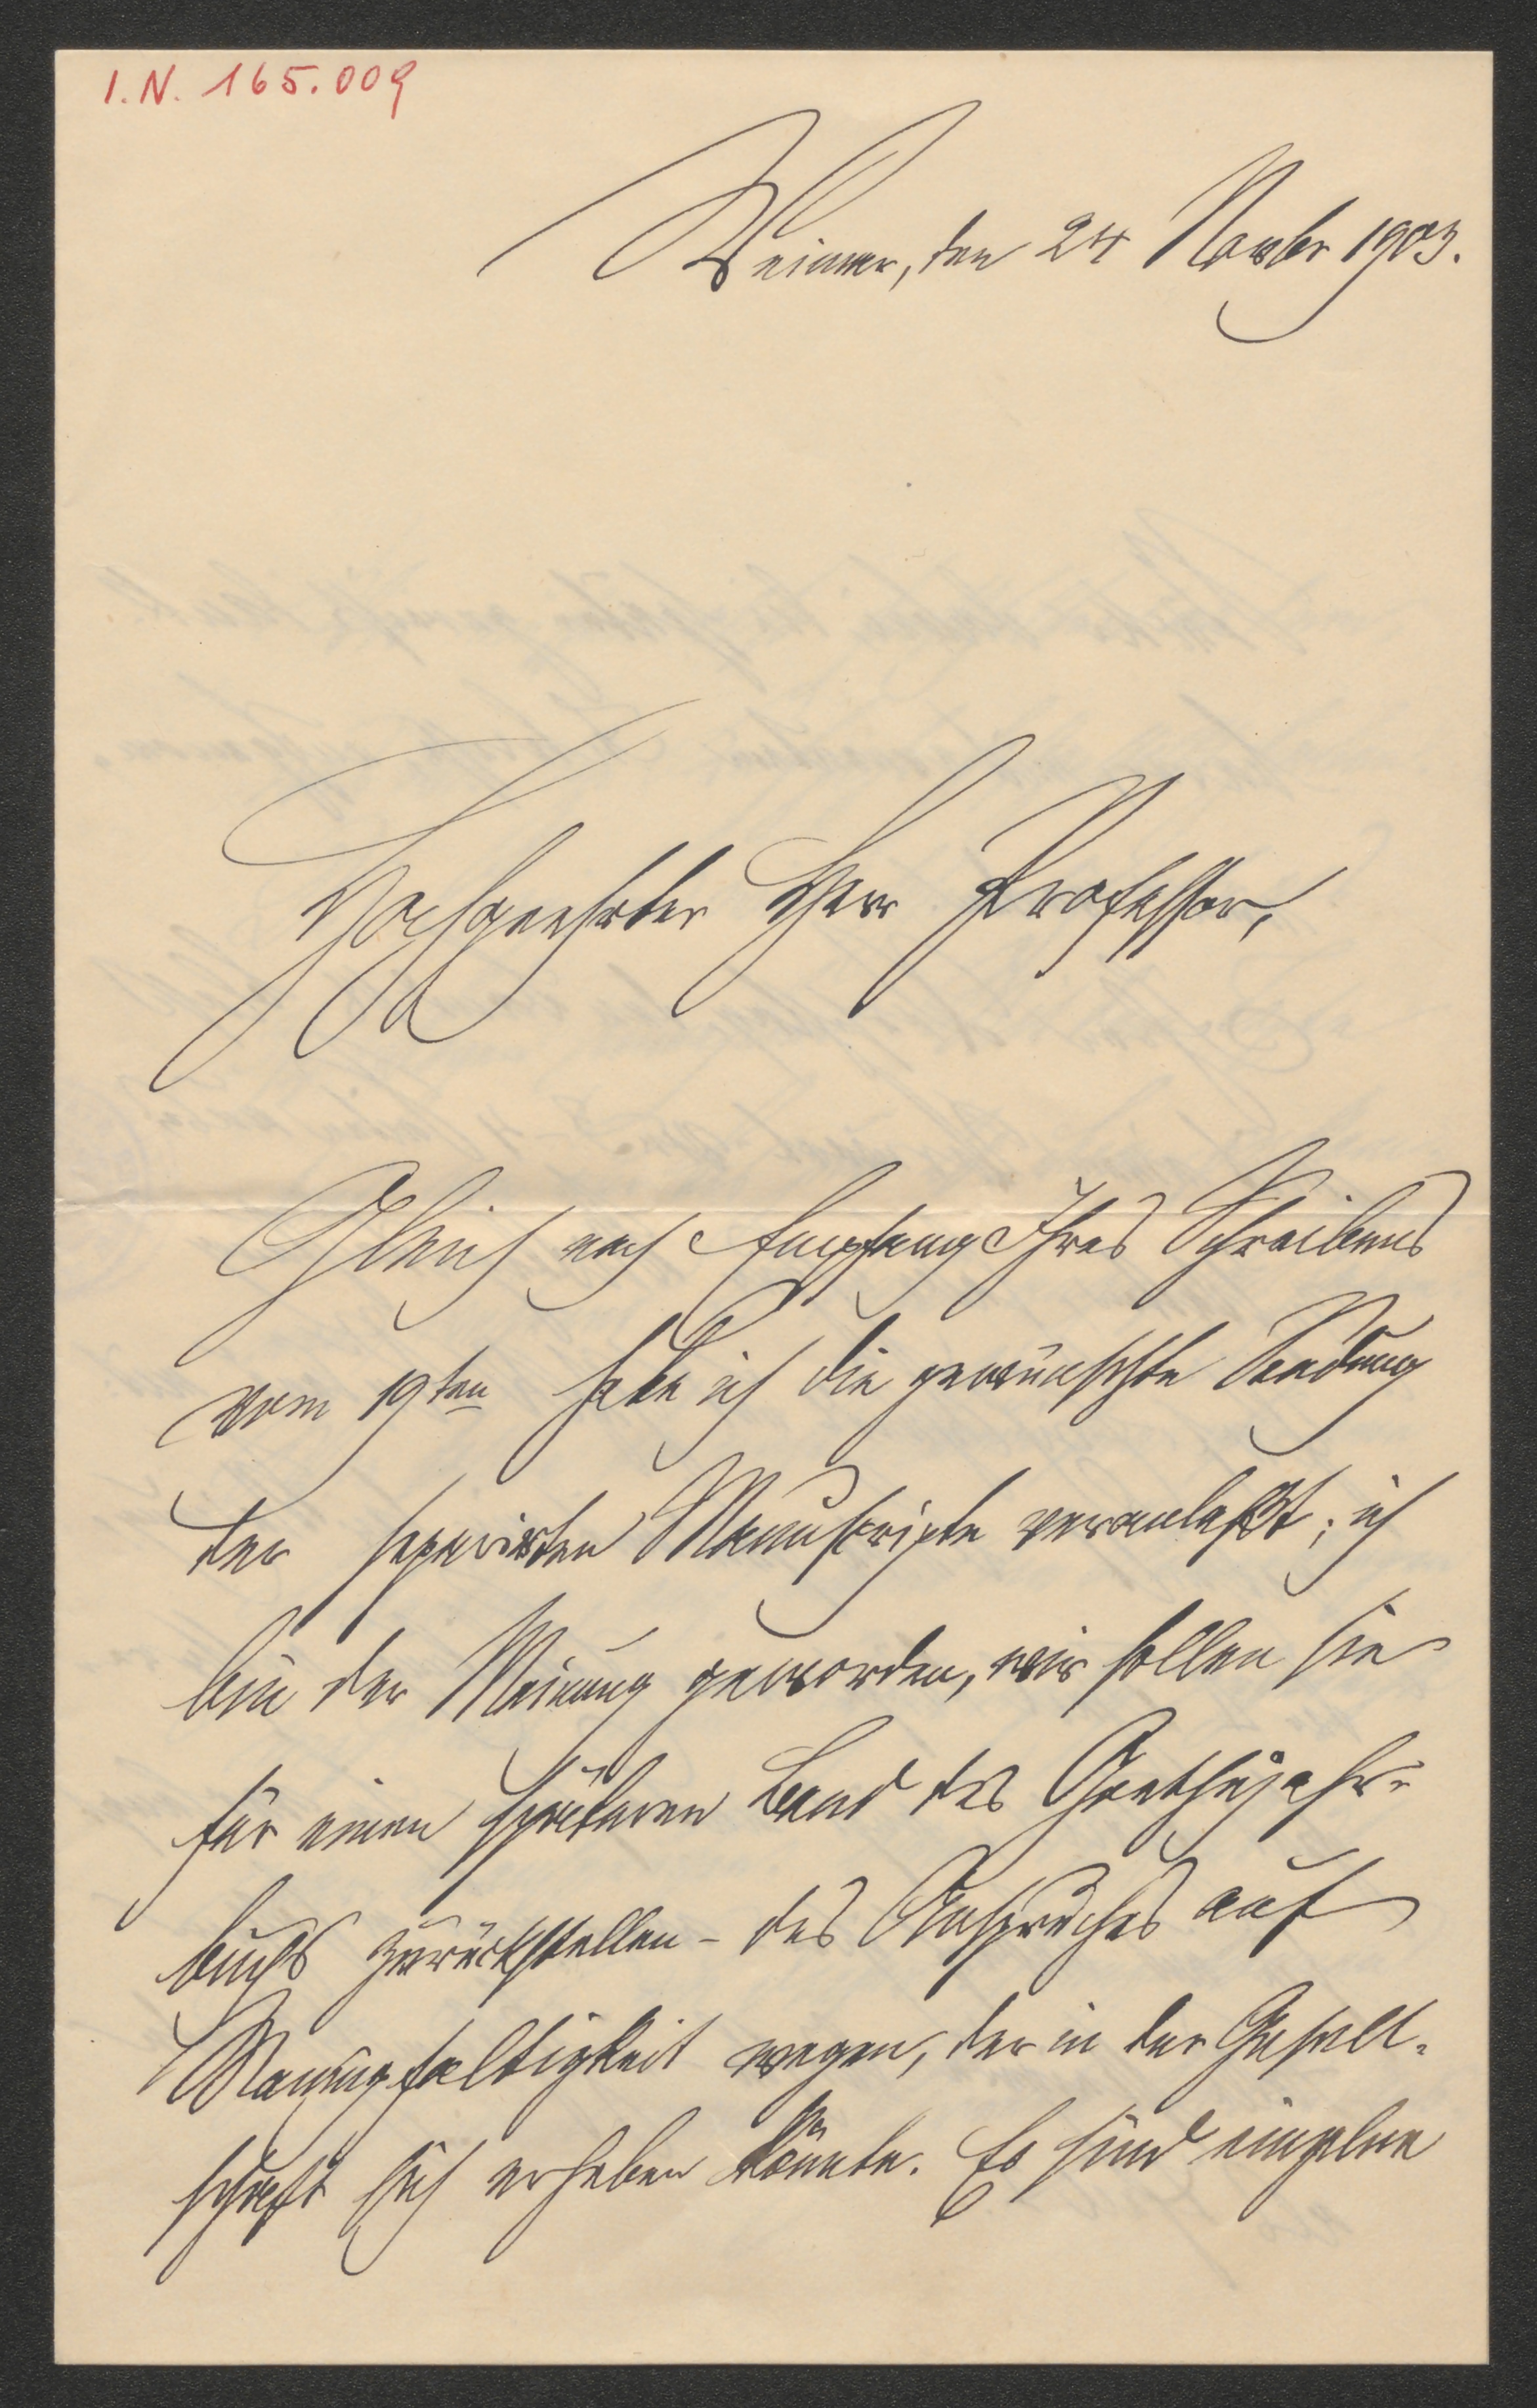 I.N. 165.009
Weimar, den 24 Novbr 1903.
Hochgeehrter Herr Professor,
Gleich nach Empfang Ihres Schreibens
vom 19ten habe ich die gewünschte Sendung
der separirten Manuscripte veranlaßt; ich
bin der Meinung geworden, wir sollen sie
für einen späteren Band des Goethejahr-
buchs zurückstellen - des Anspruches auf
Mannigfaltigkeit wegen, der in der Gesell-
schaft sich erheben könnte. Es sind einzelne